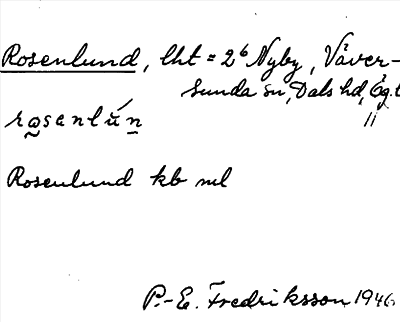 Rosenlund, lht = 2⁶ Nyby, Väver-
sunda sn, Dals hd, Ög.
rosenlún
Rosenlund kb ml
P.-E. Fredriksson 1946